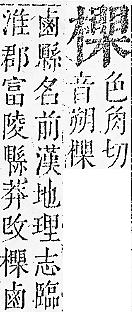 色角切
音朔
鹵縣名前漢地理志臨
淮郡富陵縣莽改鹵